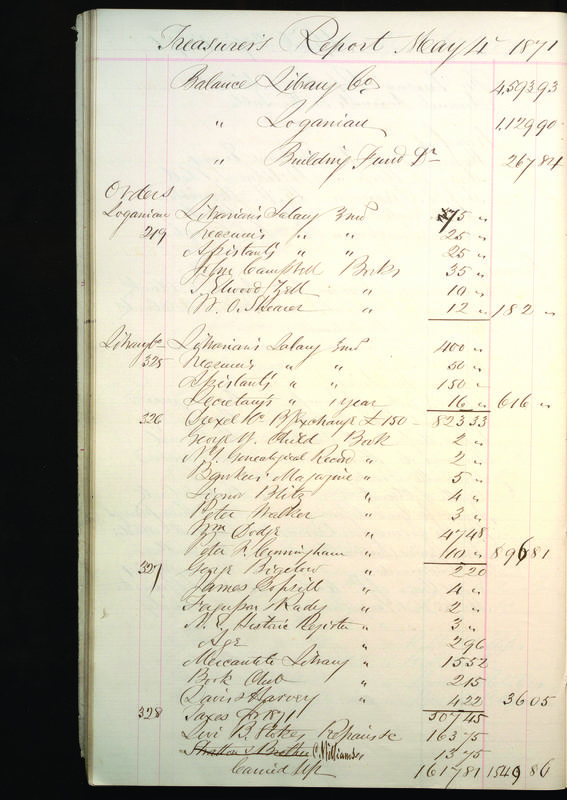 Treasurer's Report May 4th 1871
Balance Library Co 4593 93
" Loganian 1,129 90
" Building Fund Dr 267 84
Orders
Loganian Librarian's Salary 3 mo 75 "
219 Treasurer's " " 25 "
Assistant's " " 25 "
John Campbell Books 35 "
T. Elwood Zell " 10 "
W. O. Shearer " 12 " 182 "
Library Co Librarian's Salary 3 mo 400 "
325 Treasurer's " " 50 "
Assistant's " " 150 "
Secretary's " 1 year 16 " 616 "
326 Drexel & Co B/Exchange £150 - 823 33
George W. Child Book 2 "
N.Y. Genealogical Record " 2 "
Bankers' Magazine " 5 "
Signor Blitz " 4 "
Peter Walker " 3 "
Wm Dodge " 47 48
Peter F. Cunningham " 10 " 896 81
327 George Bigelow " 2 20
James Gopsill " 4 "
Ferguson & Rudy " 2 "
N. E. Historic Register " 3 "
Age " 2 96
Mercantile Library " 15 52
Book Club " 2 15
Davis & Harvey " 4 22 36 05
328 Taxes for 1871 507 45
Levi B. Stokes Repairs &c 163 75
Stratton & Brother C. Williamson 13 75
Carried up 1617 81 1549 86